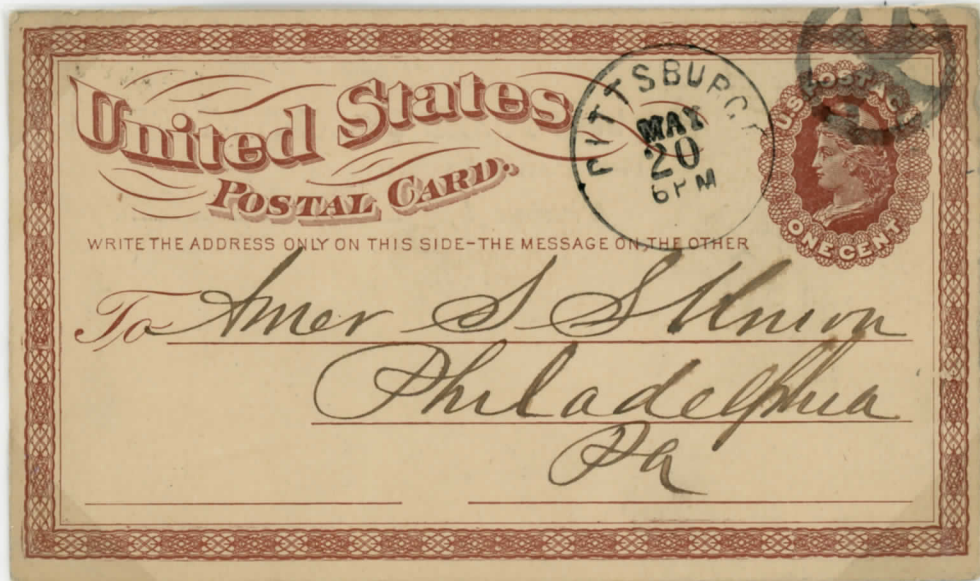 United States
Postal Card.
PITTSBURGH
MAY
20
6 PM
U.S. POSTAGE
ONE CENT
WRITE THE ADDRESS ONLY ON THIS SIDE-THE MESSAGE ON THE OTHER
To Amer S S Union
Philadelphia
Pa